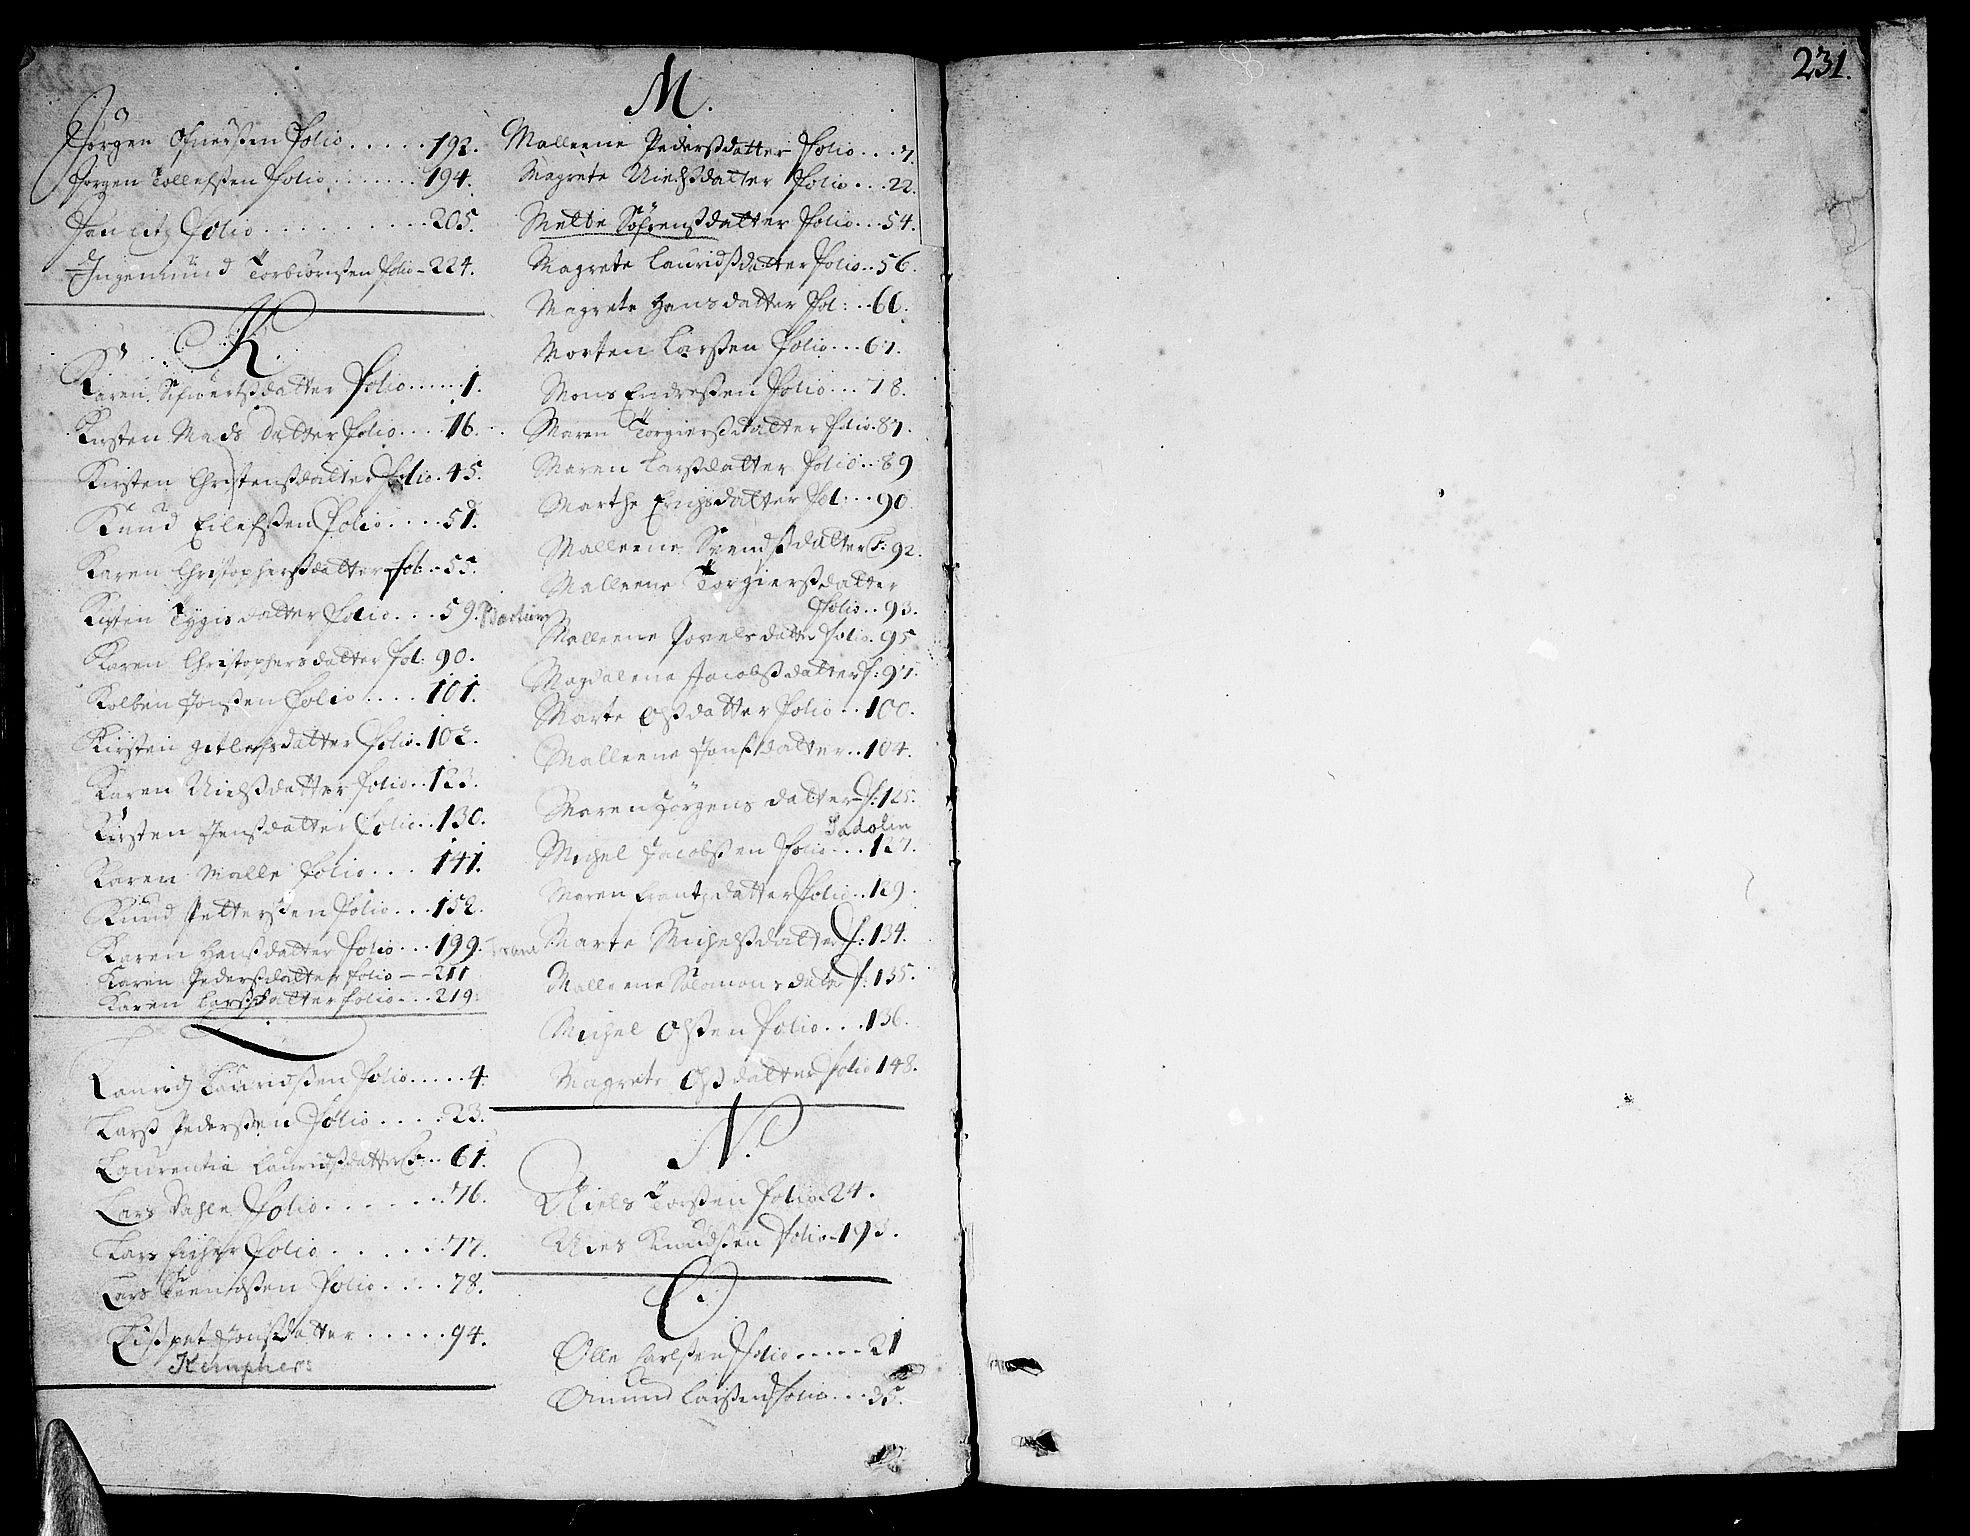 Jörgen folio . . . . . 192.
Jörgen Tollefßen folio . . . . . . . 194.
Jan folio . . . . . . . . . . 205.
Ingemund Torbiörnßen folio - 224.
K.
Karen Sifwertßdatter folio . . . . . . 1.
Kirsten Mads datter folio . . . . 16.
Kirsten Christenßdatter folio . 45.
Knud Eilefßen folio . . . . 51.
Karen Christopherßdatter fol: . . 55.
Kirsten Tygis datter folio . . . 59.
Karen Christophersdatter fol: 90.
Kolben Jonßen folio . . . . 101.
Kirsten gitlefsdatter folio . 102.
Karen Nielßdatter folio . . 123.
Kirsten Jenßdatter folio . . 130.
Karen Malle folio . . . 141.
Knud Petterßen folio . . . 152.
Karen Hanßdatter folio . . . 199.
Karen Pederßdatter folio - - 211
Karen Larßdatter folio . . . 219.
L
Lauridz Lauridßen folio . . . . . 4.
Larß Pederßen folio . . . . . 23.
Laurentia Lauridßdatter f: . . 61.
Lars Dahle folio . . . . . . . 76.
Lars folio . . . . . . . 77.
Lars Svendßen folio . . . . 78.
Lißpet Jonßdatter . . . . . 94.
Kempher:
M.
Malleene Pederßdatter folio . . . 7.
Magrete Nielßdatter folio . . . 22.
Mette Söfrenßdatter folio . . . 54.
Magrete Lauridßdatter folio . . 56.
Magrete Hansdatter fol: . . 66.
Morten Larßen folio . . . 67.
Mons Endreßen folio . . . 78.
Maren Torgierßdatter folio . 87.
Maren Larßdatter folio . . 89
Marthe Erichsdatter fol: . . 90.
Malleene Svendßdatter f: 92.
Malleene Torgierßdatter
folio . . 93.
Malleene Povelsdatter folio . 95
Magdalena Jacobßdatter f: 97.
Marte Olßdatter folio . . 100.
Malleene Jonßdatter . . 104.
Maren Jörgens datter f: 125.
Sadolin
Michel Jacobßen folio . . . 127.
Maren Frantzdatter folio . . 129.
Marte Michelßdatter f: 134.
Malleene Salomonsdatter f: 135.
Michel Olßen folio . . . 136.
Magrete Olßdatter folio 148.
N.
Niels Torßen folio . 24.
Niels Knudßen folio . 193.
O.
Olle Carlßen folio . . . . . 21
Omund Larßen folio . . . 35.
231.